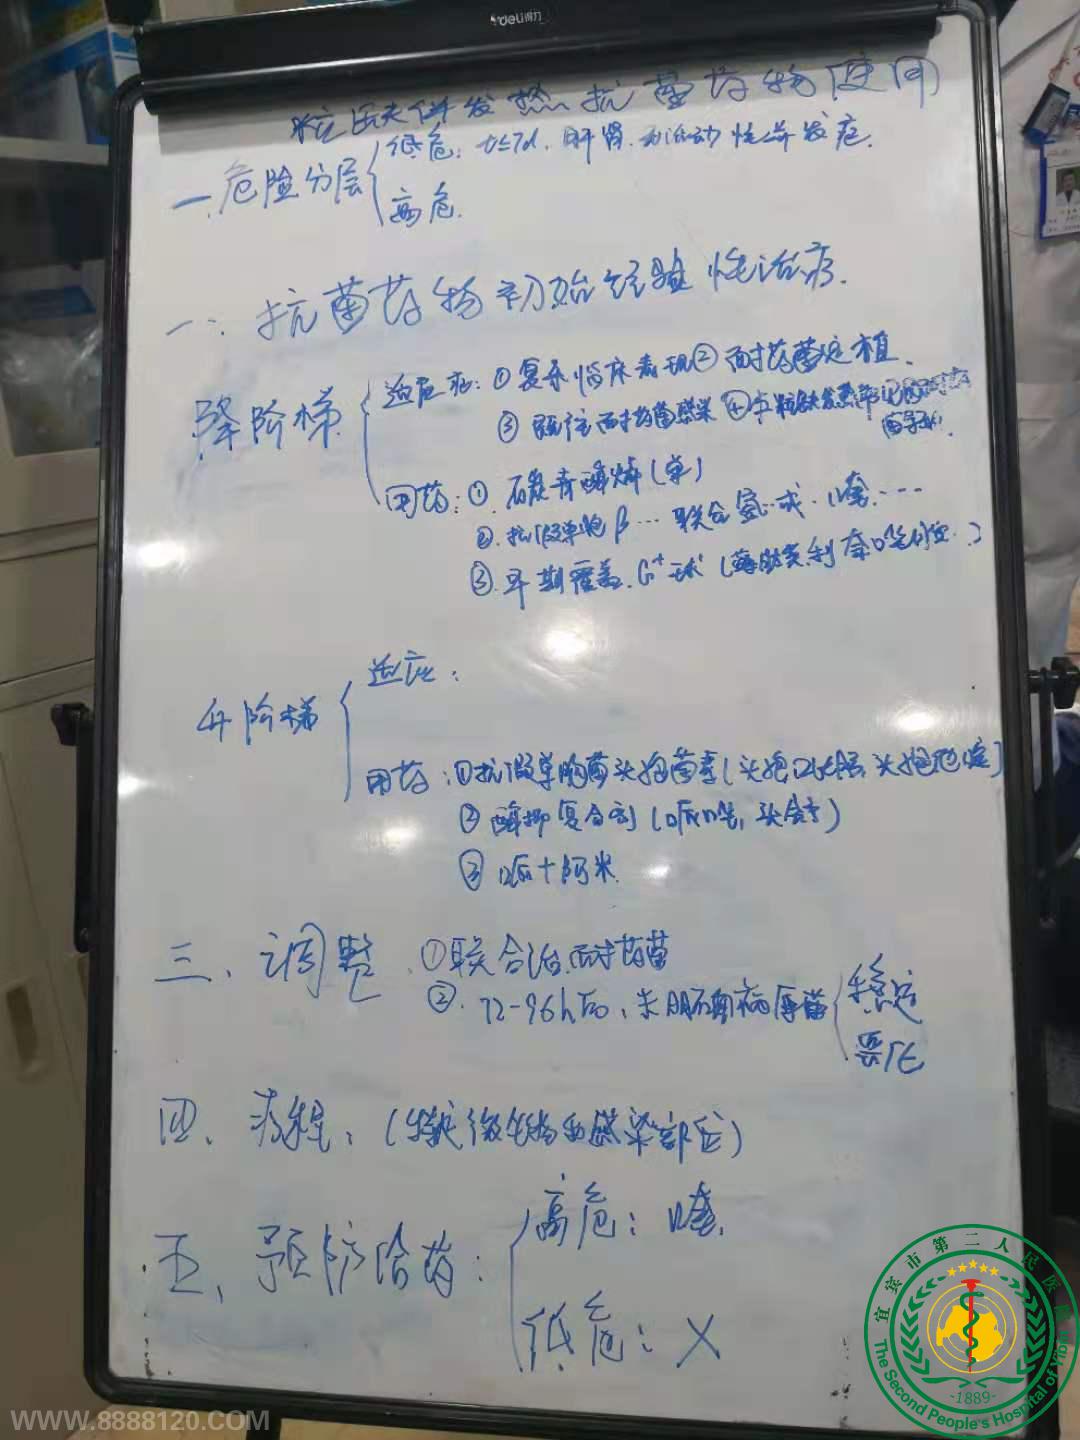 deli得力
粒缺伴发热抗菌药物使用
一.危险分层
低危: t≤7d, 肝肾 活动性并发症.
高危.
二.抗菌药物初始经验性治疗.
降阶梯
适应症: ①复杂临床表现 ②耐药菌定植.
③既往耐药菌感染 ④本
用药: ①.碳青酶烯(单)
②.抗假单胞β…联合氨…或.喹….
③.早期覆盖.G+球(
升阶梯
适应:
用药: ①抗假单胞菌头孢菌素(头孢吡肟,头孢他啶)
②酶抑复合剂(哌
③哌+阿米.
三、调整.①联合治.耐药菌
②.72-96h后,未明确病原菌
稳定
恶化
四、疗程、(特定微生物和感染部位)
五、预防给药:
高危:喹.
低危:X
宜宾市第二人民医院
-1889-
The Second People's Hospital of Yibin
WWW.8888120.COM